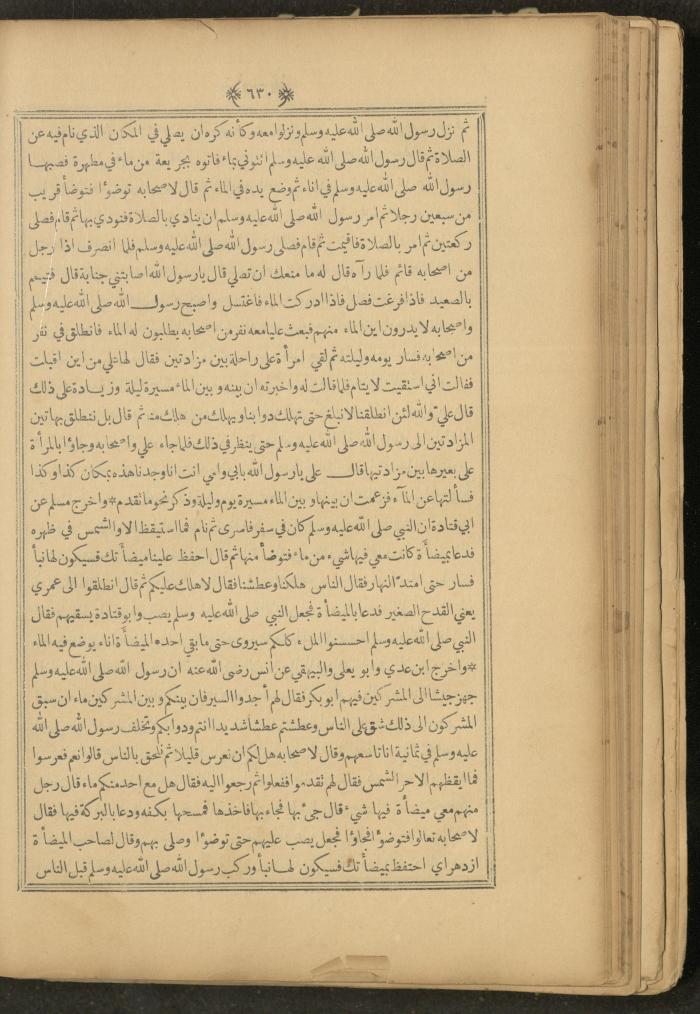 ٦٣٠
ثم نزل رسول الله صلى الله عليه وسلم ونزلوا معه وكأنه كره ان يصلي في المكان الذي نام فيه عن
الصلاة ثم قال رسول الله صلى الله عليه وسلم ائتوني بماء فاتوه بجريعة من ماء في مطهرة فصبها
رسول الله صلى الله عليه وسلم في اناء ثم وضع يده في الماء ثم قال لاصحابه توضؤا فتوضأ قريب
من سبعين رجلا ثم امر رسول الله صلى الله عليه وسلم ان ينادي بالصلاة فنودي بها ثم قام فصلى
ركعتين ثم امر بالصلاة فاقيمت ثم قام فصلى رسول الله صلى الله عليه وسلم فلما انصرف اذا رجل
من اصحابه قائم فلما رآه قال له ما منعك ان تصلي قال يا رسول الله اصابتني جنابة قال فتيمم
بالصعيد فاذا فرغت فصل فاذا ادركت الماء فاغتسل واصبح رسول الله صلى الله عليه وسلم
واصحابه لا يدرون اين الماء منهم فبعث عليا معه نفر من اصحابه يطلبون له الماء فانطلق في نفر
من اصحابه فسار يومه وليلته ثم لقي امرأة على راحلة بين مزادتين فقال لها علي من اين اقبلت
فقالت اني استقيت لايتام فلما قالت له واخبرته ان بينه وبين الماء مسيرة ليلة وزيادة على ذلك
قال علي والله لئن انطلقنا لا نبلغ حتى تهلك دوابنا ويهلك من هلك منا ثم قال بل ننطلق بهاتين
المزادتين الى رسول الله صلى الله عليه وسلم حتى ينظر في ذلك فلما جاء علي واصحابه وجاؤا بالمرأة
على بعيرها بين مزادتيها قال علي يا رسول الله بابي وامي انت انا وجدنا هذه بمكان كذا وكذا
فسألتها عن الماء فزعمت ان بينها وبين الماء مسيرة يوم وليلة وذكر نحو ما تقدم * واخرج مسلم عن
ابي قتادة ان النبي صلى الله عليه وسلم كان في سفر فاسرى ثم نام فما استيقظ الا والشمس في ظهره
فدعا بميضأة كانت معي فيها شيء من ماء فتوضأ منها ثم قال احفظ علينا ميضأتك فسيكون لها نبأ
فسار حتى امتد النهار فقال الناس هلكنا وعطشنا فقال لا هلك عليكم ثم قال انطلقوا الى غمري
يعني القدح الصغير فدعا بالميضأة فجعل النبي صلى الله عليه وسلم يصب وابو قتادة يسقيهم فقال
النبي صلى الله عليه وسلم احسنوا الملء كلكم سيروى حتى ما بقي احد ه الميضأة اناء يوضع فيه الماء
* واخرج ابن عدي وابو يعلى والبيهقي عن انس رضى الله عنه ان رسول الله صلى الله عليه وسلم
جهز جيشا الى المشركين فيهم ابو بكر فقال لهم أجدوا السير فان بينكم وبين المشركين ماء ان سبق
المشركون الى ذلك شق على الناس وعطشتم عطشا شديدا انتم ودوابكم وتخلف رسول الله صلى الله
عليه وسلم في ثمانية انا تاسعهم وقال لاصحابه هل لكم ان نعرس قليلا ثم نلحق بالناس قالوا نعم فعرسوا
فما ايقظهم الا حر الشمس فقال لهم تقدموا ففعلوا ثم رجعوا اليه فقال هل مع احد منكم ماء قال رجل
منهم معي ميضأة فيها شيء قال جئ بها فجاء بها فاخذها فمسحها بكفه ودعا بالبركة فيها فقال
لاصحابه تعالوا فتوضؤا فجاؤا فجعل يصب عليهم حتى توضؤا وصلى بهم وقال لصاحب الميضأة
ازدهر اي احتفظ بميضأتك فسيكون لها نبأ وركب رسول الله صلى الله عليه وسلم قبل الناس